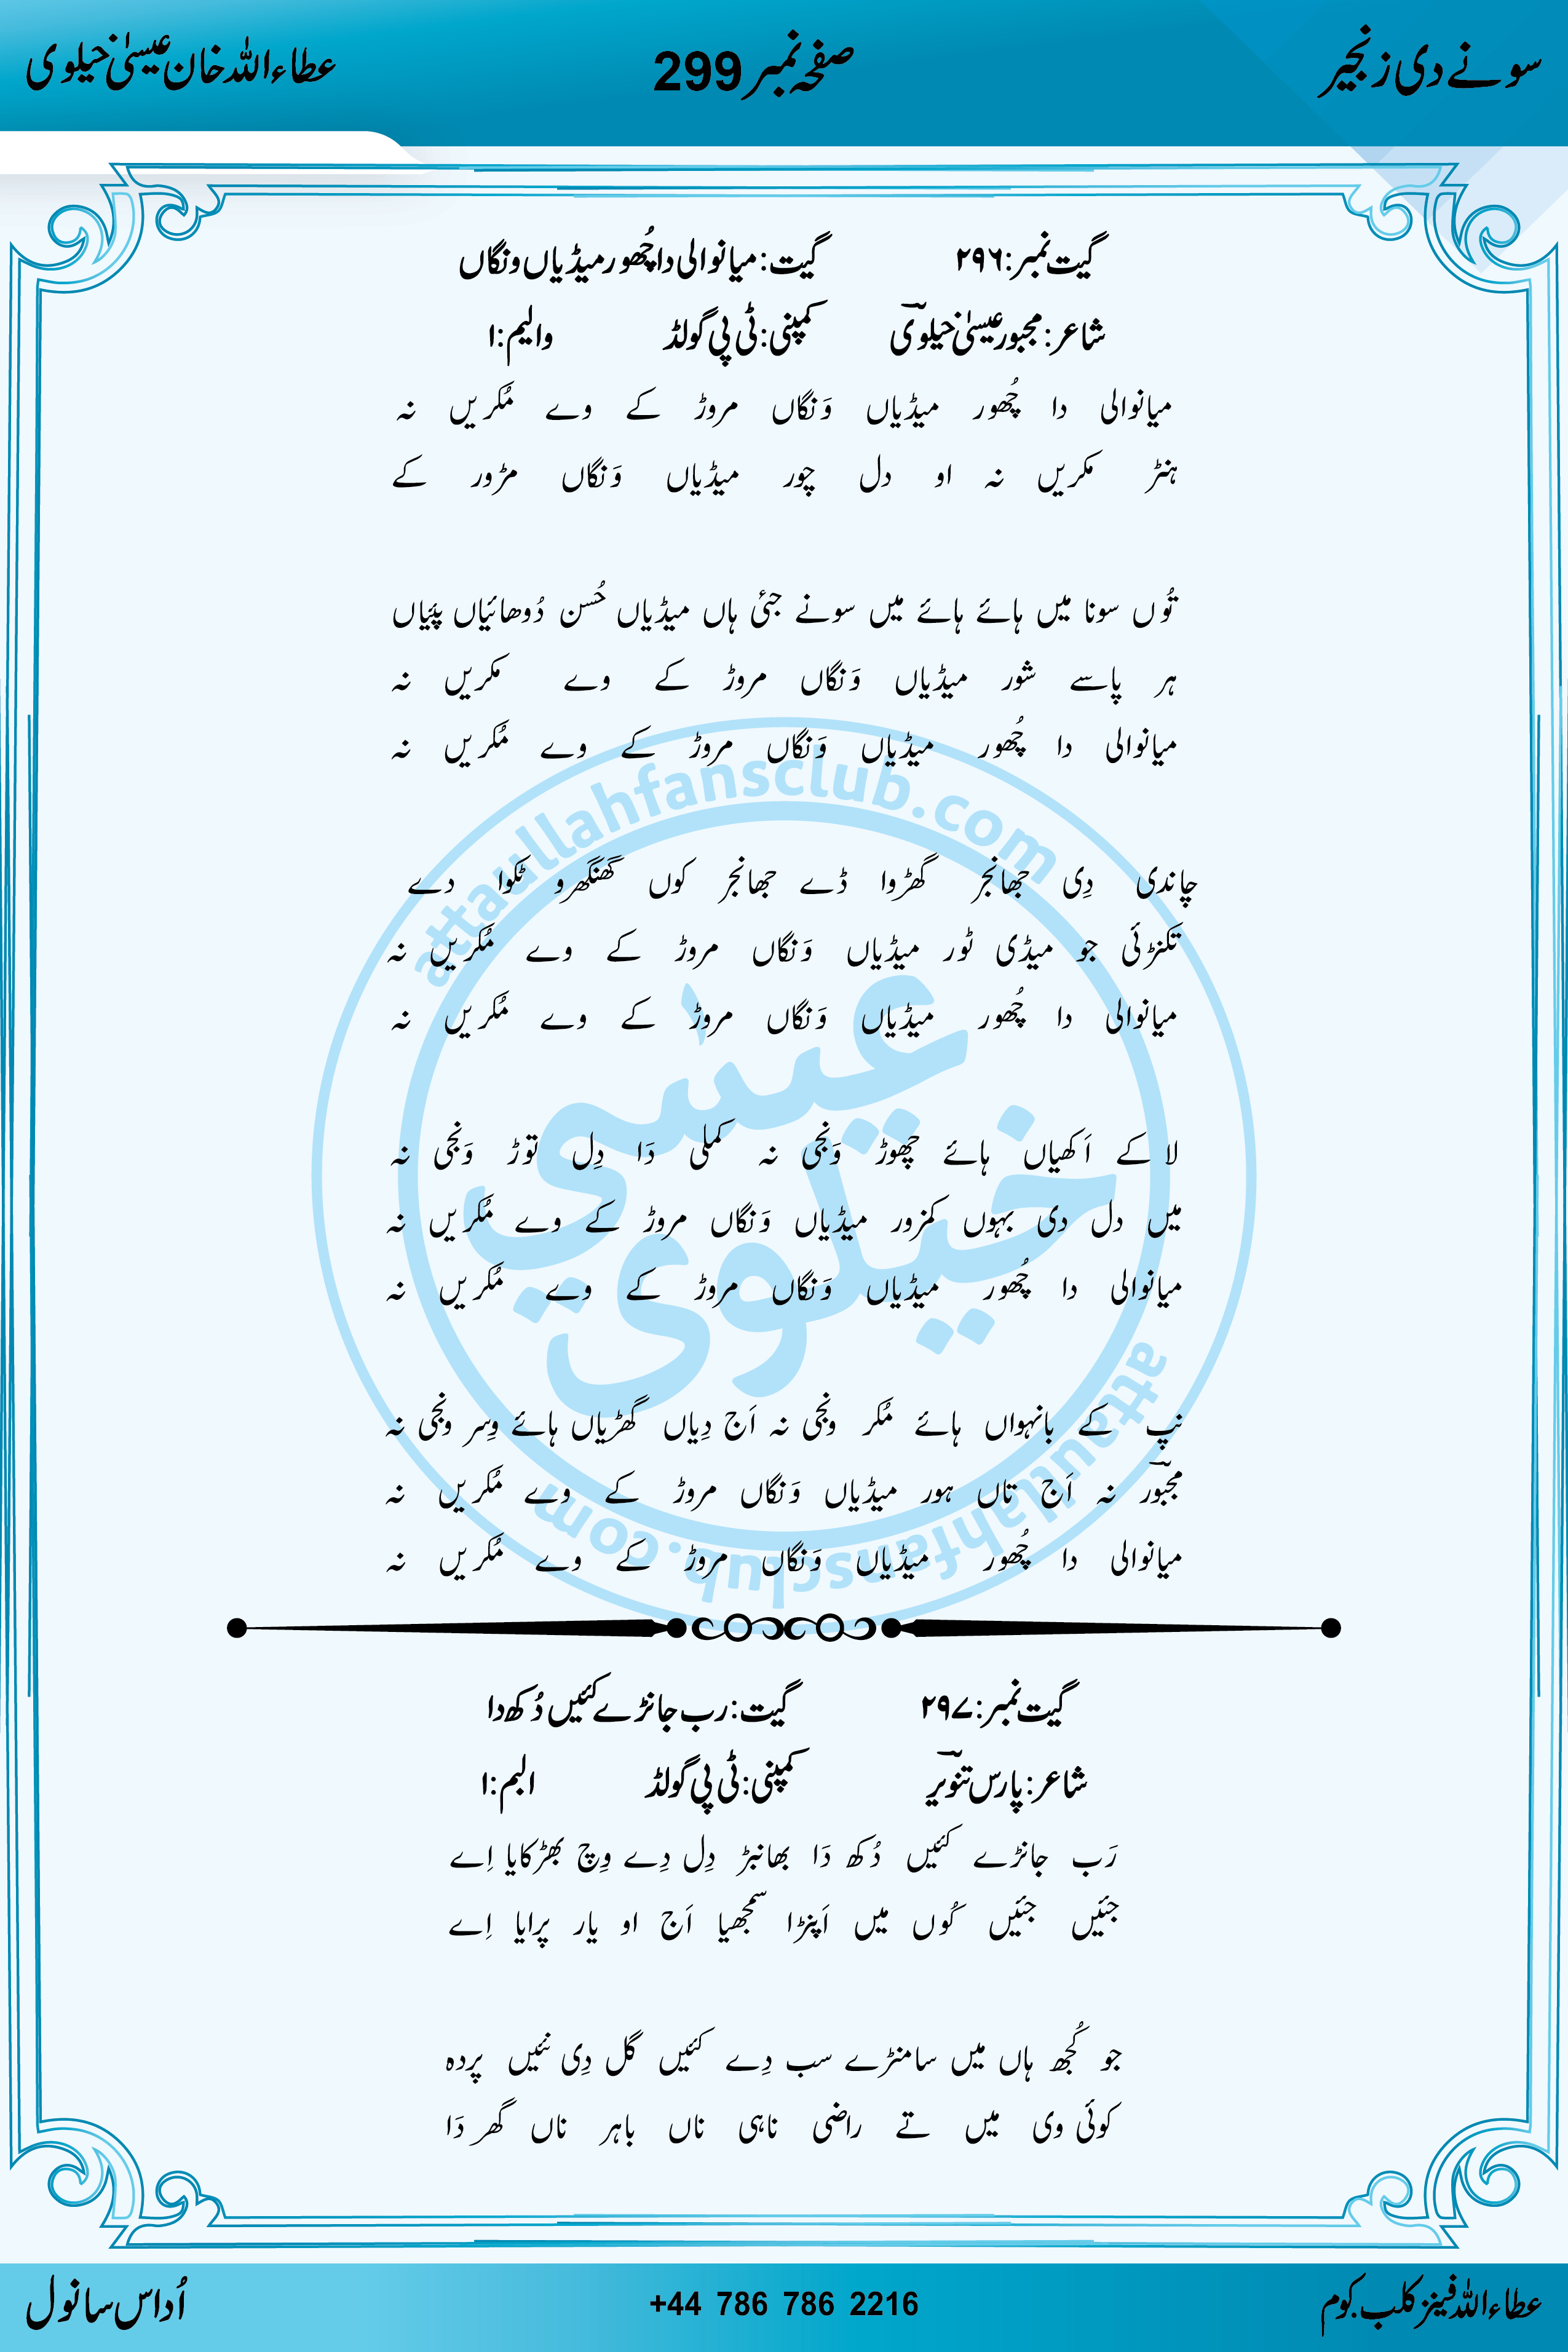 سونے دی زنجیر
صفحہ نمبر 299
عطاءاللہ خان عیسیٰ خیلوی
گیت نمبر: ۲۹۶ گیت: میانوالی دا چُھور میڈیاں ونگاں
شاعر: مجبور عیسیٰ خیلویؔ کمپنی: ٹی پی گولڈ والیم: ۱
میانوالی دا چُھور میڈیاں وَنگاں مروڑ کے وے مُکریں نہ
ہنڑ مکریں نہ او دل چور میڈیاں وَنگاں مڑور کے
تُوں سونا میں ہائے ہائے میں سونے جئی ہاں میڈیاں حُسن دُوھائیاں پئیاں
ہر پاسے شور میڈیاں وَنگاں مروڑ کے وے مکریں نہ
میانوالی دا چُھور میڈیاں وَنگاں مروڑ کے وے مُکریں نہ
چاندی دِی جھانجر گھڑوا ڈے جھانجر کوں گھنگھرو ٹکوا دے
تکنڑئی جو میڈی ٹور میڈیاں وَنگاں مروڑ کے وے مُکریں نہ
میانوالی دا چُھور میڈیاں وَنگاں مروڑ کے وے مُکریں نہ
لا کے اَکھیاں ہائے چھوڑ وَنجی نہ کملی دَا دِل توڑ وَنجی نہ
میں دل دی بہوں کمزور میڈیاں وَنگاں مروڑ کے وے مُکریں نہ
میانوالی دا چُھور میڈیاں وَنگاں مروڑ کے وے مُکریں نہ
نپ کے بانہواں ہائے مُکر ونجی نہ اَج دِیاں گھڑیاں ہائے وِسر ونجی نہ
مجبورؔ نہ اَج تاں ہور میڈیاں وَنگاں مروڑ کے وے مُکریں نہ
میانوالی دا چُھور میڈیاں وَنگاں مروڑ کے وے مُکریں نہ
attaullahfansclub.com
عیسیٰ
خیلوی
attaullahfansclub.com
گیت نمبر: ۲۹۷ گیت: رب جانڑے کئیں دُکھ دا
شاعر: پارس تنویرؔ کمپنی: ٹی پی گولڈ البم: ۱
رَب جانڑے کئیں دُکھ دَا بھانبڑ دِل دِے وِچ بھڑکایا اِے
جئیں جئیں کُوں میں اَپنڑا سمجھیا اَج او یار پرایا اِے
جو کُجھ ہاں میں سامنڑے سب دِے کئیں گل دِی نئیں پردہ
کوئی وی میں تے راضی ناہی ناں باہر ناں گھر دَا
عطاءاللہ فینز کلب.کوم
+44 786 786 2216
اُداس سانول